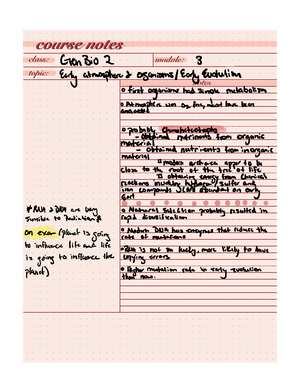 course notes
class: Gen Bio 2
module: 3
topic: Early atmosphere & organisms/Early Evolution
notes
First organisms had simple metabolism
Atmosphere was O₂ free, must have been
anaerobic
probably
- Obtained nutrients from organic
material
- obtained nutrients from inorganic
material
modern archaea appear to be
close to the root of the tree of life
obtaining energy from chemical
reactions involving hydrogen/sulfur and
iron compounds (abundant on early
Earth
* RNA & DNA are very
on exam (planet is going
to influence life and life
is going to influence the
planet)
Natural Selection probably resulted in
rapid diversification
Modern DNA has enzymes that reduce the
rate of mutations
RNA is not so lucky, more likely to have
copying errors
Higher mutation rate in early evolution
than now.